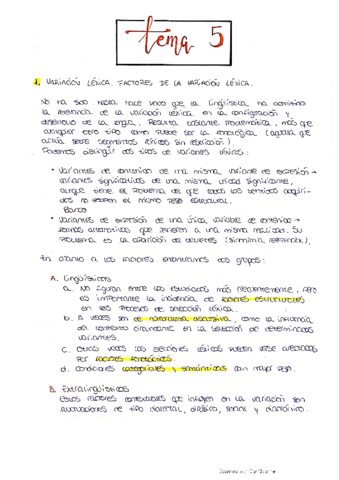 tema 5
1. VARIACIÓN LÉXICA. FACTORES DE LA VARIACIÓN LÉXICA.
No ha sido hasta hace poco que la lingüística ha admitido
la relevancia de la variación léxica en la configuración y
de la lengua. Resulta bastante problemática, más que
cualquier otro tipo como puede ser la fonológica (aquella que
actúa sobre segmentos fónicos sin
Podemos distinguir dos tipos de variantes léxicas:
• Variantes de contenido de una misma variable de expresión →
variantes significativas de una misma unidad significante,
aunque tiene el problema de que todos los sentidos
no poseen el mismo peso estructural.
Banco
• Variantes de expresión de una única variable de contenido →
formas alternativas que refieren a una misma realidad. Su
problema es la aparición de
En cuanto a los factores encontramos dos grupos:
A. Lingüísticos
a. No figuran entre los estudiados más frecuentemente, pero
es importante la influencia de factores estructurales
en los procesos de selección léxica.
b. A veces son de naturaleza asociativa, como la influencia
del contexto circundante en la selección de determinadas
variantes.
c. Otras veces las elecciones léxicas pueden verse afectadas
por factores fonéticos.
d. Condiciones categoriales y semánticas con mayor peso.
B. Extralingüísticos
Estos factores contextuales que influyen en la variación son
de tipo diatópico, social y